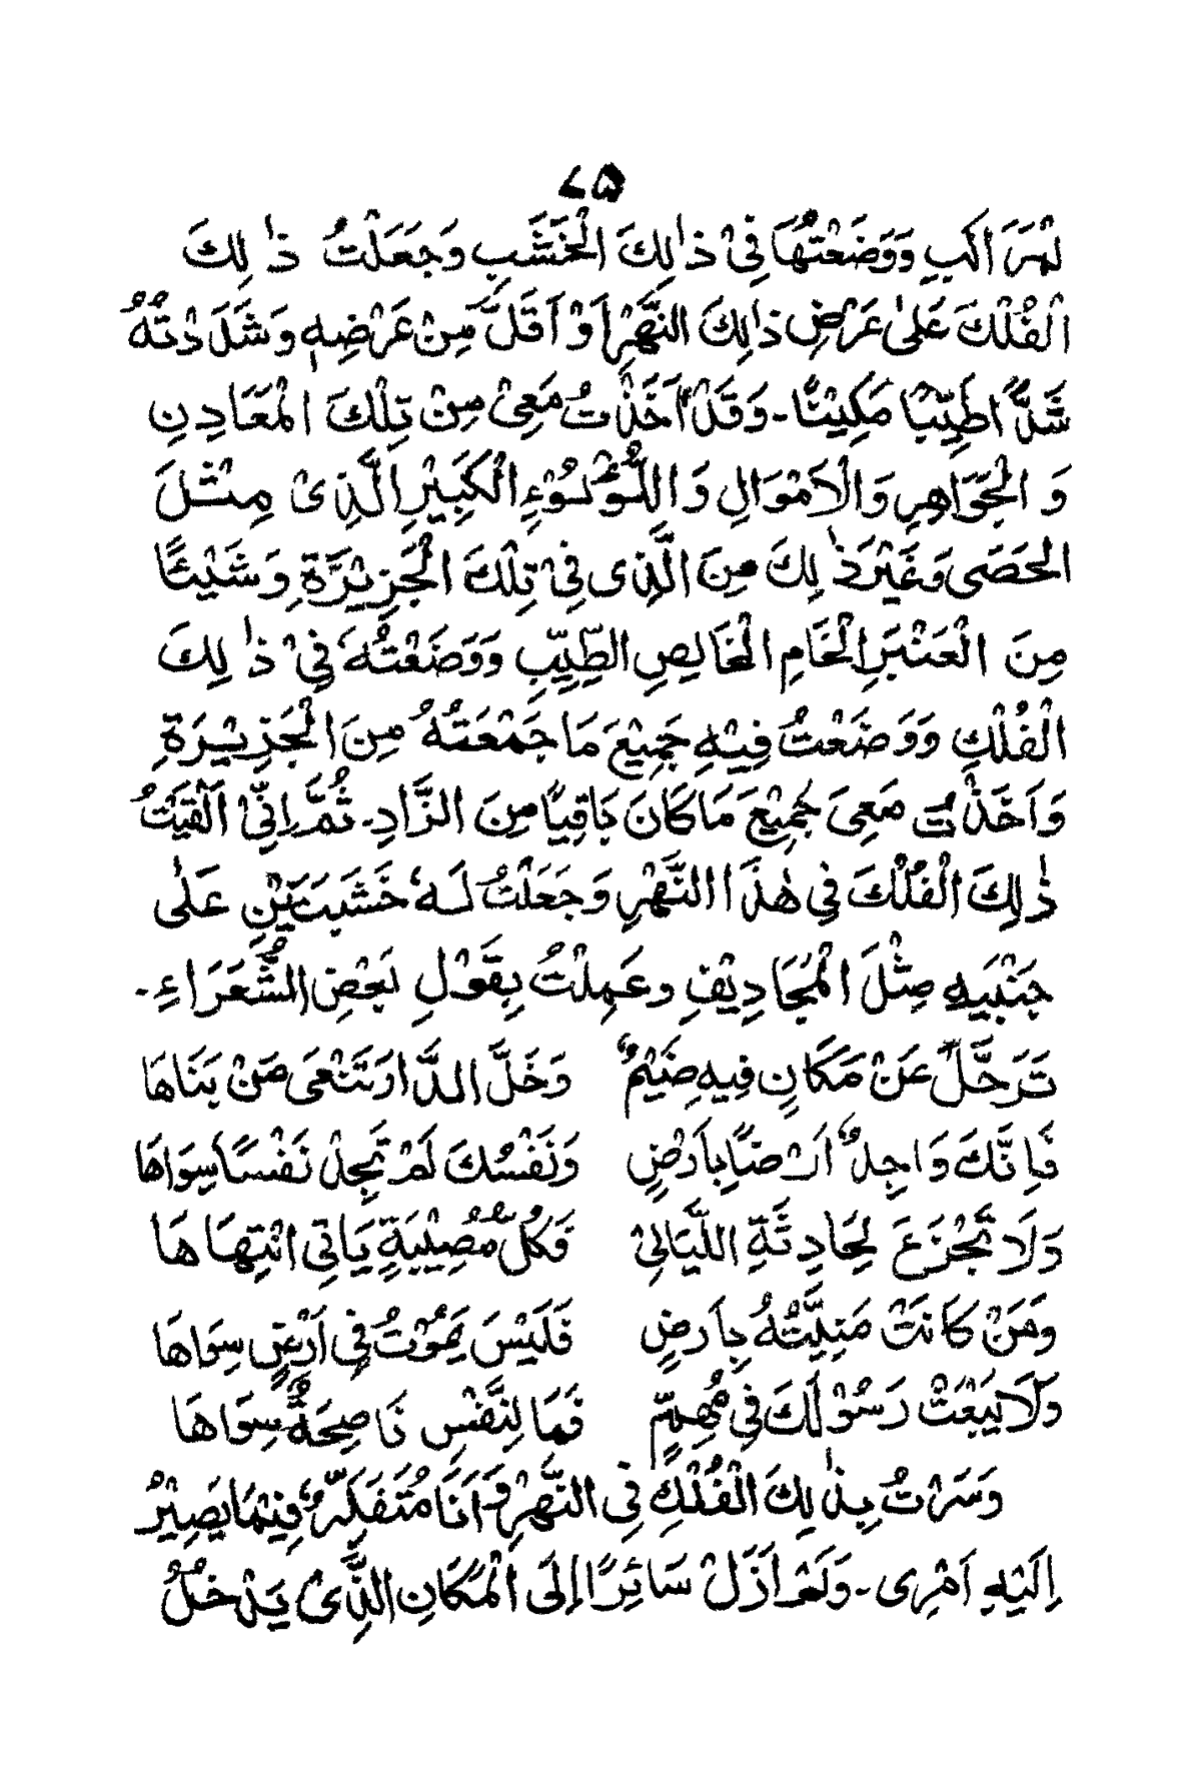 ۷۵
لْمَرَاكِبِ وَوَضَعْتُهَا فِيْ ذٰلِكَ الْخَشَبِ وَجَعَلْتُ ذٰلِكَ
الْفُلْكَ عَلىٰ عَرْضِ ذٰلِكَ النَّهْرِ اَوْ اَقَلَّ مِنْ عَرْضِهٖ وَشَدَدْتُهُ
شَدًّا طَيِّبًا مَكِيْنًا۔ وَقَدْ اَخَذْتُ مَعِيْ مِنْ تِلْكَ الْمَعَادِنِ
وَ الْجَوَاهِرِ وَالْاَمْوَالِ وَ اللُّؤْلُوْءِ الْكَبِيْرِ الَّذِىْ مِثْلَ
الْحَصَى وَغَيْرَ ذٰلِكَ مِنَ الَّذِى فِىْ تِلْكَ الْجَزِيْرَةِ وَشَيْئًا
مِنَ الْعَنْبَرِ الْخَامِ الْخَالِصِ الطَّيِّبِ وَوَضَعْتُهُ فِيْ ذٰلِكَ
الْفُلْكِ وَوَضَعْتُ فِيْهِ جَمِيْعَ مَا جَمَعْتُهُ مِنَ الْجَزِيْرَةِ
وَاَخَذْتُ مَعِىَ جَمِيْعَ مَاكَانَ بَاقِيًا مِنَ الزَّادِ۔ ثُمَّ اِنِّىْ اَلْقَيْتُ
ذٰلِكَ الْفُلْكَ فِي هٰذَا النَّهْرِ وَجَعَلْتُ لَهٗ خَشَبَتَيْنِ عَلٰى
جَنْبَيْهِ مِثْلَ الْمَجَادِيْفِ وعَمِلْتُ بِقَوْلِ بَعْضِ الشُّعَرَاءِ۔
تَرَحَّلْ عَنْ مَكَانٍ فِيهِ ضَيْمٌ    وَخَلِّ الدَّارَ تَنْعَى مَنْ بَنَاهَا
فَاِنَّكَ وَاجِدٌ اَرْضًا بِاَرْضٍ    وَنَفْسُكَ لَمْ تَجِدْ نَفْسًا سِوَاهَا
وَلَا تَجْزَعَ لِحَادِثَةِ اللَّيَالِيْ    فَكُلُّ مُصِيْبَةٍ يَاتِى انْتِهَاهَا
وَمَنْ كَانَتْ مَنِيَّتُهُ بِاَرضٍ    فَلَيْسَ يَمُوْتُ فِى اَرْضٍ سِوَاهَا
وَلَا يَبْعَثْ رَسُوْلَكَ فِي مُهِمٍّ    فَمَا لِنَّفْسِ نَاصِحَةٌ سِوَاهَا
وَسَرْتُ بِذٰلِكَ الْفُلْكِ فِى النَّهْرِ وَاَنَا مُتَفَكِّرٌ فِيْمَا يَصِيْرُ
اِلَيْهِ اَمْرِى۔ وَلَمْ اَزَلْ سَائِرًا اِلَى الْمَكَانِ الَّذِىْ يَدْخُلُ